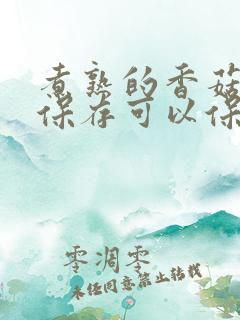 煮熟的香菇
保存可以保
零凋零
未经同意禁止转载